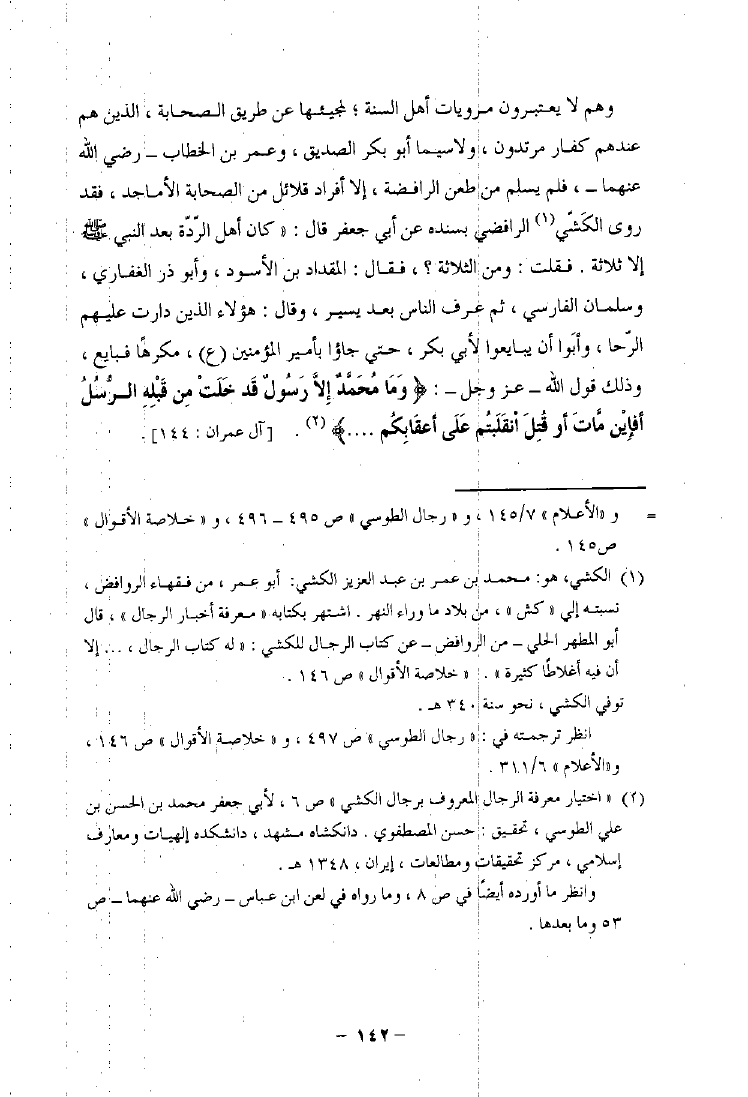 وهم لا يعتبرون مرويات أهل السنة ؛ لمجيئها عن طريق الصحابة ، الذين هم
عندهم كفار مرتدون ، ولاسيما أبو بكر الصديق ، وعمر بن الخطاب – رضي الله
عنهما – ، فلم يسلم من طعن الرافضة ، إلا أفراد قلائل من الصحابة الأماجد ، فقد
روى الكَشّي(١) الرافضي بسنده عن أبي جعفر قال : « كان أهل الرّدّة بعد النبي ﷺ
إلا ثلاثة . فقلت : ومن الثلاثة ؟ ، فقال : المقداد بن الأسود ، وأبو ذر الغفاري ،
وسلمان الفارسي ، ثم عرف الناس بعد يسير ، وقال : هؤلاء الذين دارت عليهم
الرّحا ، وأبَوا أن يبايعوا لأبي بكر ، حتي جاؤا بأمير المؤمنين (ع) ، مكرهًا فبايع ،
وذلك قول الله – عز وجل – : ﴿ وَمَا مُحَمَّدٌ إِلاَّ رَسُولٌ قَد خَلَتْ مِن قَبْلِهِ الرُّسُلُ
أفَإِيْن مَّاتَ أو قُتِلَ انْقَلَبتُم عَلَى أعقَابِكُم ....﴾ (٢) . [آل عمران : ١٤٤] .
= و «الأعلام » ١٤٥/٧ ، و « رجال الطوسي » ص ٤٩٥ – ٤٩٦ ، و « خلاصة الأقوال »
ص١٤٥ .
(١) الكشي، هو: محمد بن عمر بن عبد العزيز الكشي: أبو عمر ، من فقهاء الروافض ،
نسبته إلي « كش » ، من بلاد ما وراء النهر . اشتهر بكتابه « معرفة أخبار الرجال » ، قال
أبو المطهر الحلي – من الروافض – عن كتاب الرجال للكشي : « له كتاب الرجال ، ... إلا
أن فيه أغلاطًا كثيرة » . « خلاصة الأقوال » ص ١٤٦ .
توفي الكشي ، نحو سنة ٣٤٠ هـ .
انظر ترجمته في : « رجال الطوسي » ص ٤٩٧ ، و « خلاصة الأقوال » ص ١٤٦ ،
و«الأعلام » ٣١١/٦ .
(٢) « اختيار معرفة الرجال المعروف برجال الكشي » ص ٦ ، لأبي جعفر محمد بن الحسن بن
علي الطوسي ، تحقيق : حسن المصطفوي . دانكشاه مشهد ، دانشكده إلهيات ومعارف
إسلامي ، مركز تحقيقات ومطالعات ، إيران ، ١٣٤٨ هـ .
وانظر ما أورده أيضًا في ص ٨ ، وما رواه في لعن ابن عباس – رضي الله عنهما – ص
٥٣ وما بعدها .
– ١٤٢ –